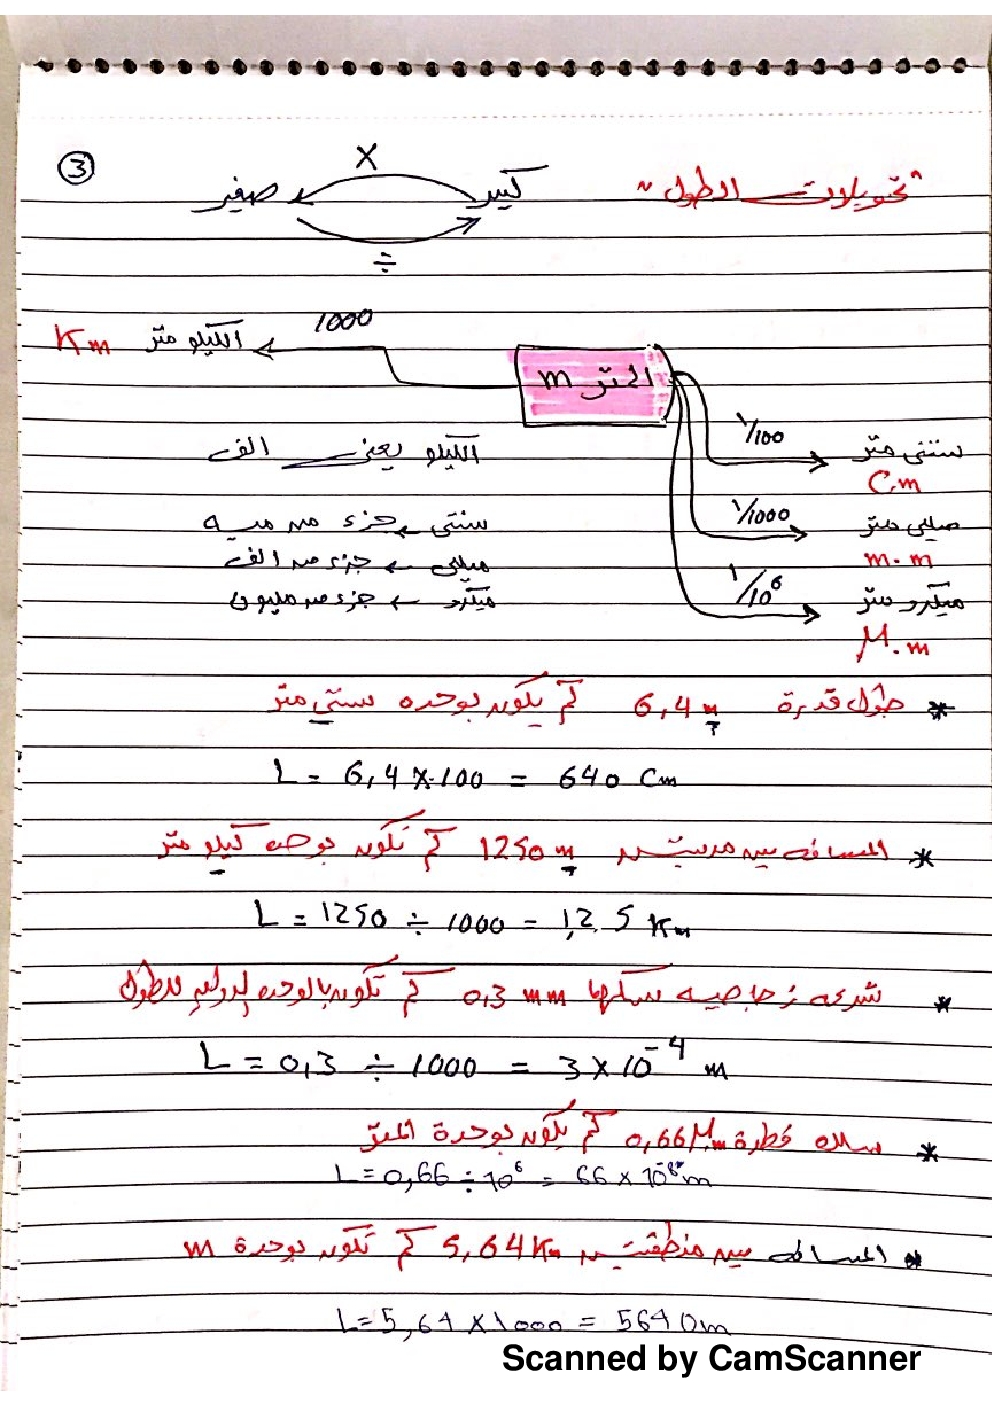 3
"تحويلات الطول"
×
كبير
صغير
÷
1000
الكيلو متر Km
المتر m
1/100
سنتي متر
C.m
الكيلو يعني الف
1/1000
ملي متر
m.m
سنتي ← جزء من ميه
ميلي ← جزء من الف
1/10⁶
ميكرو متر
μ.m
ميكرو ← جزء من مليون
* طول قدرة 6,4 m كم يكون بوحده سنتي متر
L = 6,4 × 100 = 640 Cm
* المسافه بين مدينتين 1250 m كم تكون بوحده كيلو متر
L = 1250 ÷ 1000 = 1,2.5 Km
* شريحه زجاجيه سمكها 0,3 mm كم تكون بالوحده الدوليه للطول
L = 0,3 ÷ 1000 = 3 × 10⁻⁴ m
* سلك قطرة 0,66 μm كم يكون بوحدة المتر
L = 0,66 ÷ 10⁶ = 66 × 10⁻⁸ m
* المسافه بين منطقتين 5,64 Km كم تكون بوحدة m
L = 5,64 × 1000 = 5640 m
Scanned by CamScanner